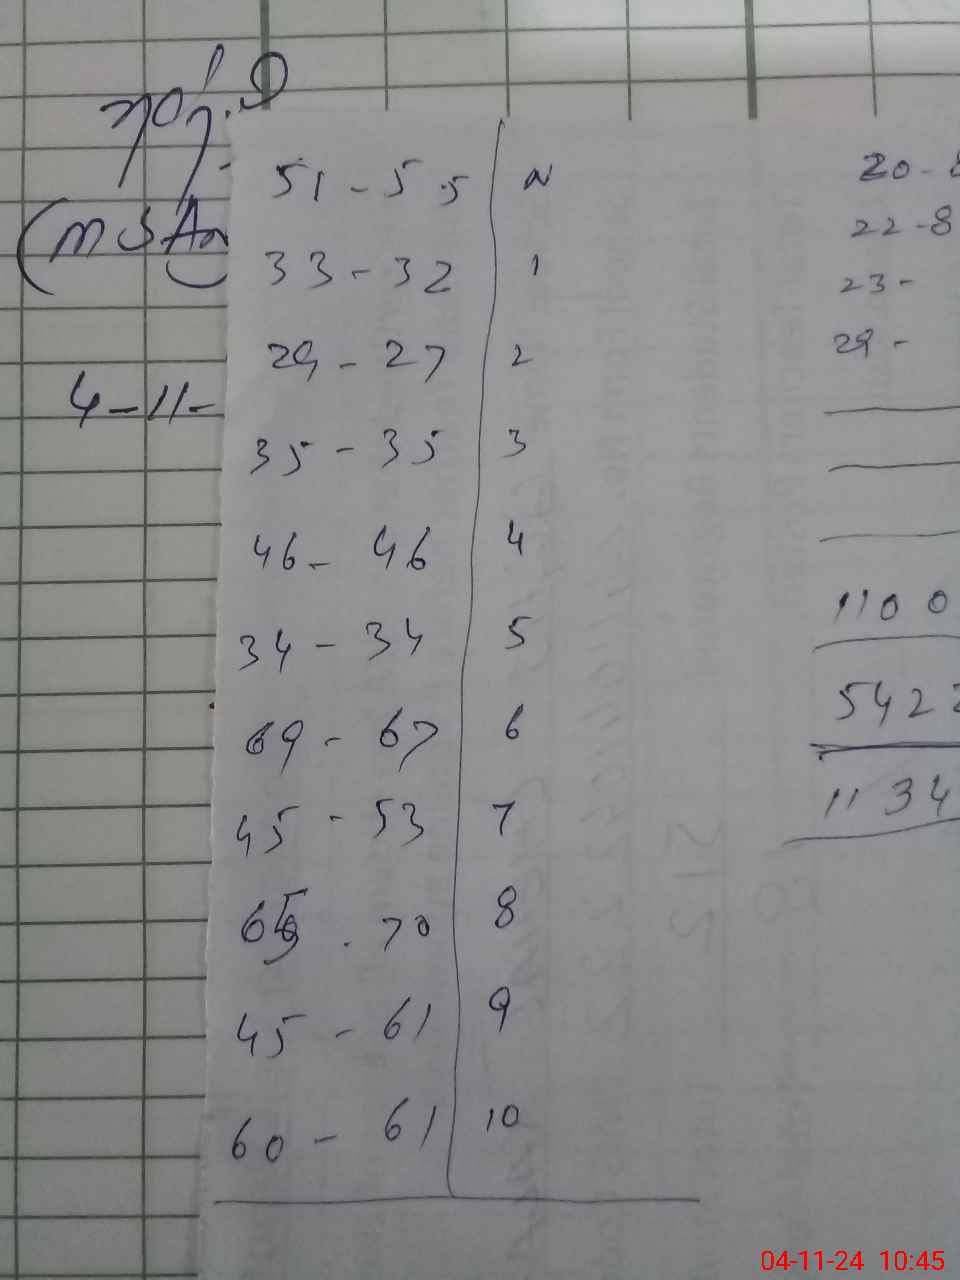 (M S
4-11-
51 - 55 N
33 - 32 1
29 - 27 2
35 - 35 3
46 - 46 4
34 - 34 5
69 - 67 6
45 - 53 7
70 8
45 - 61 9
60 - 61 10
20 -
22 -8
23 -
29 -
1100
5422
1134
04-11-24 10:45